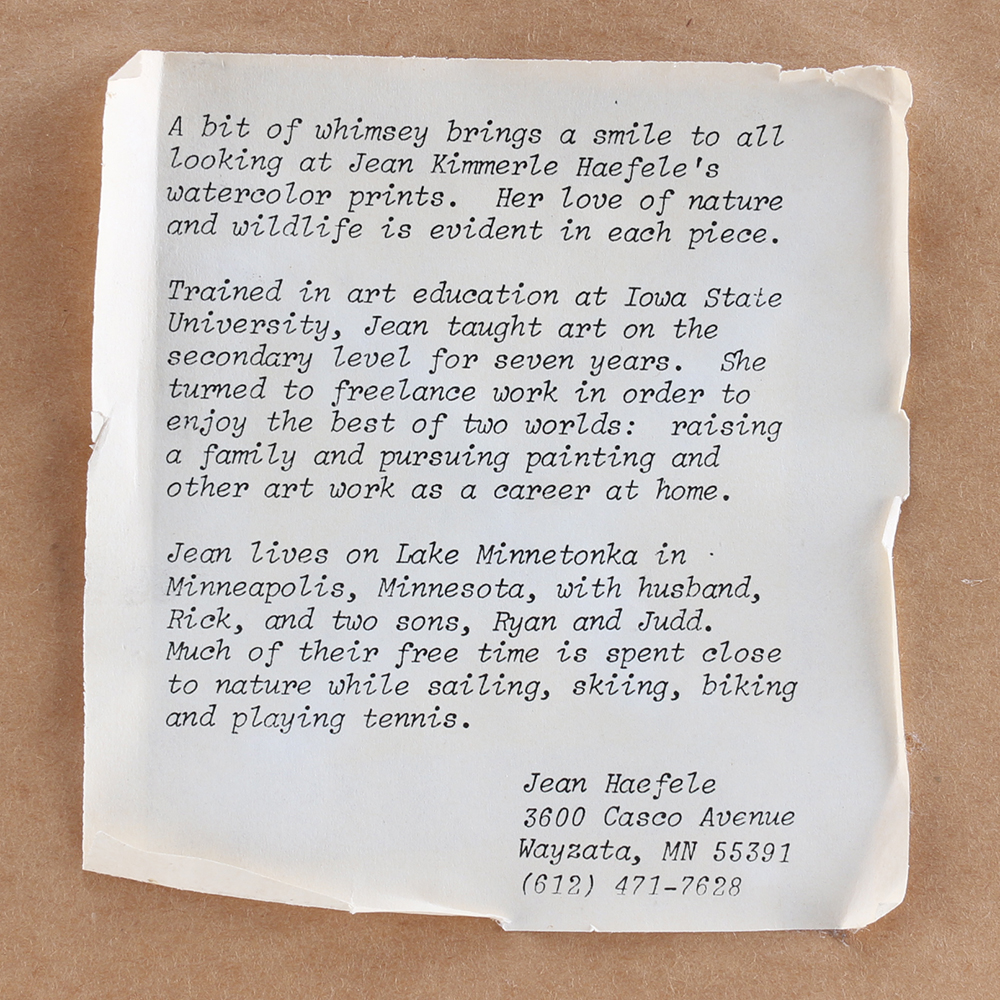 A bit of whimsey brings a smile to all
looking at Jean Kimmerle Haefele's
watercolor prints.  Her love of nature
and wildlife is evident in each piece.

Trained in art education at Iowa State
University, Jean taught art on the
secondary level for seven years.  She
turned to freelance work in order to
enjoy the best of two worlds:  raising
a family and pursuing painting and
other art work as a career at home.

Jean lives on Lake Minnetonka in
Minneapolis, Minnesota, with husband,
Rick, and two sons, Ryan and Judd.
Much of their free time is spent close
to nature while sailing, skiing, biking
and playing tennis.

Jean Haefele
3600 Casco Avenue
Wayzata, MN 55391
(612) 471-7628